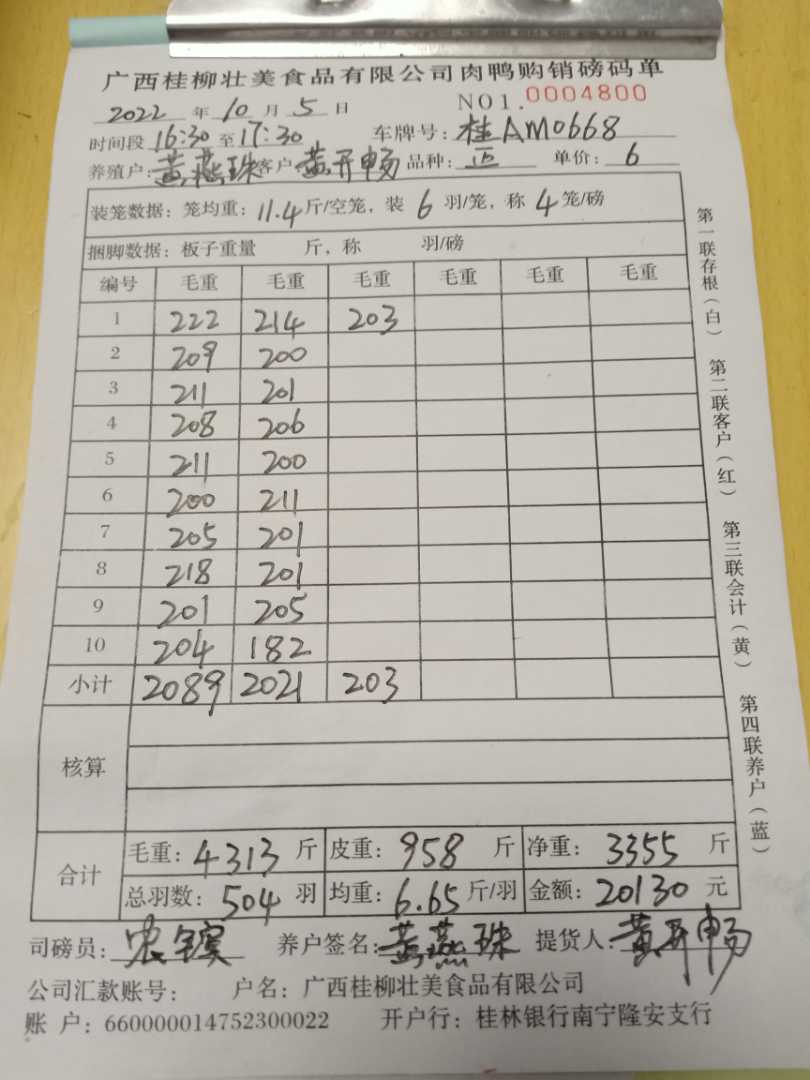 广西桂柳壮美食品有限公司肉鸭购销磅码单
2022 年 10 月 5 日 NO1.0004800
时间段 16:30 至 17:30 车牌号: 桂AM0668
养殖户: 黄燕珠 客户 黄开畅 品种: 正 单价: 6
装笼数据: 笼均重: 11.4 斤/空笼, 装 6 羽/笼, 称 4 笼/磅
捆脚数据: 板子重量 斤, 称 羽/磅
编号 毛重 毛重 毛重 毛重 毛重 毛重
1 222 214 203
2 209 200
3 211 201
4 208 206
5 211 200
6 200 211
7 205 201
8 218 201
9 201 205
10 204 182
小计 2089 2021 203
核算
合计
毛重: 4313 斤 皮重: 958 斤 净重: 3355 斤
总羽数: 504 羽 均重: 6.65 斤/羽 金额: 20130 元
司磅员: 养户签名: 黄燕珠 提货人: 黄开畅
公司汇款账号: 户名: 广西桂柳壮美食品有限公司
账 户: 660000014752300022 开户行: 桂林银行南宁隆安支行
第一联存根(白) 第二联客户(红) 第三联会计(黄) 第四联养户(蓝)